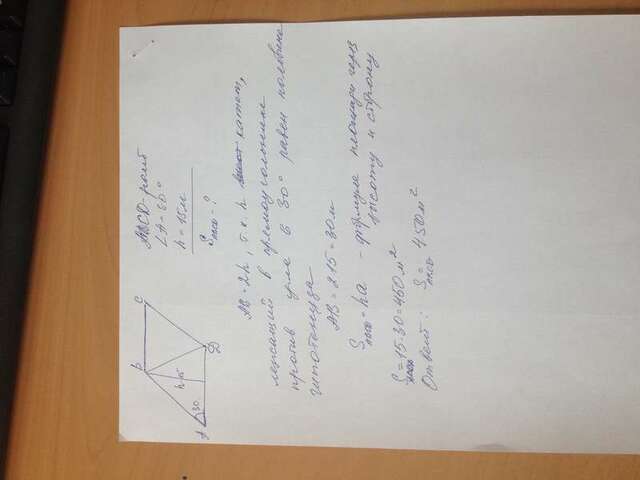 B
C
h=15
A
30
D
ABCD-ромб
∠A=30°
h=15м
SABCD-?
AB=2h, т.к. h катет,
лежащий в прямоугольнике
против угла в 30° равен половине
гипотенуза
AB=2·15=30м
SABCD=ha - формула площади через
высоту и сторону
SABCD=15·30=450м²
Ответ: SABCD=450м²